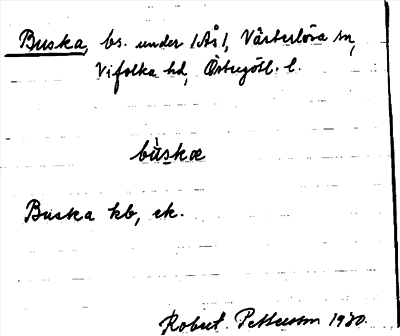 Buska, bs. under 1/Ås 1, Västerlösa sn,
Vifolka hd, Östergötl. l.
bùskæ
Buska kb, ek.
Robert Pettersson 1930.